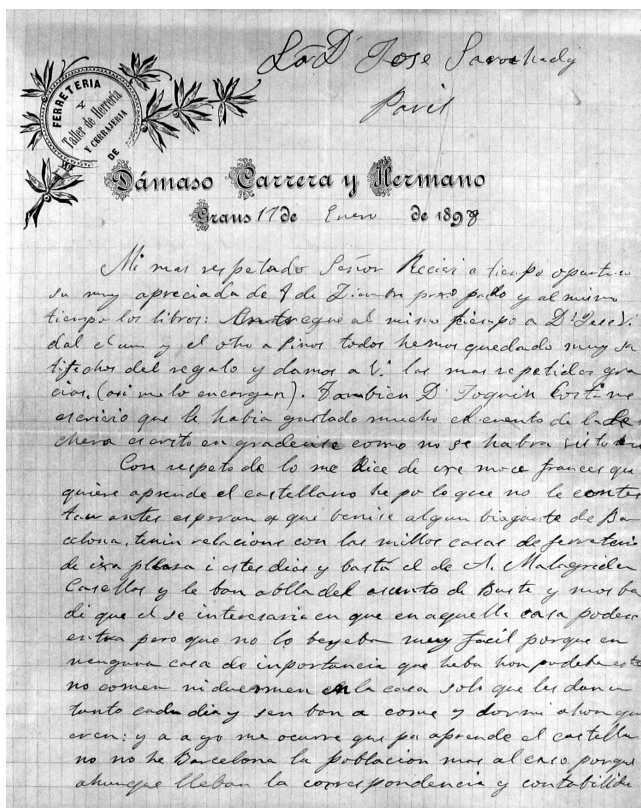 Sr D. Jose Saroihady
Paris
FERRETERIA
Taller de Herreria
Y CERRAJERIA
DE
Dámaso Carrera y Hermano
Graus 17 de Enero de 1898
Mi mas respetado Señor Recibi a tiempo oportuno
su muy apreciada de 8 de pro pdo y al mismo
tiempo los libros: Entregue al mismo tiempo a D. Jose Vi
dal el uno y el otro a Pinos todos hemos quedado muy sa
tisfechos del regalo y damos a V. las mas repetidas gra
cias, (asi me lo encargan). Tambien D. Joquin Costa me
escricio que le habia gustado mucho el cuento de la Le
chera escrito en gradense como no se habra visto
Con respeto de lo me dice de ixe moce frances que
quiere aprende el castellano he po lo que no le contes
tau antes esperan a que benise algun biagante de Bar
celona, tenin relacions con las millos casas de ferreteria
de ixa pllasa i estes dias y bastá el de A. Malagrida
Casellas y le ban ablla del asunto de Buste y mos ba
di que el se interesaria en que en aquella casa podese
entra pero que no lo beyeba muy facil porque en
nenguna casa de inportancia que heba hon podeba está
no comen ni duermen en la casa solo que les dan un
tanto cada dia y sen ban a come y dormi ahon qu
eren: y a yo me ocurre que pa aprende el castella
no no he Barcelona la poblacion mas al caso porque
ahunque lleban la correspondencia y contabilida